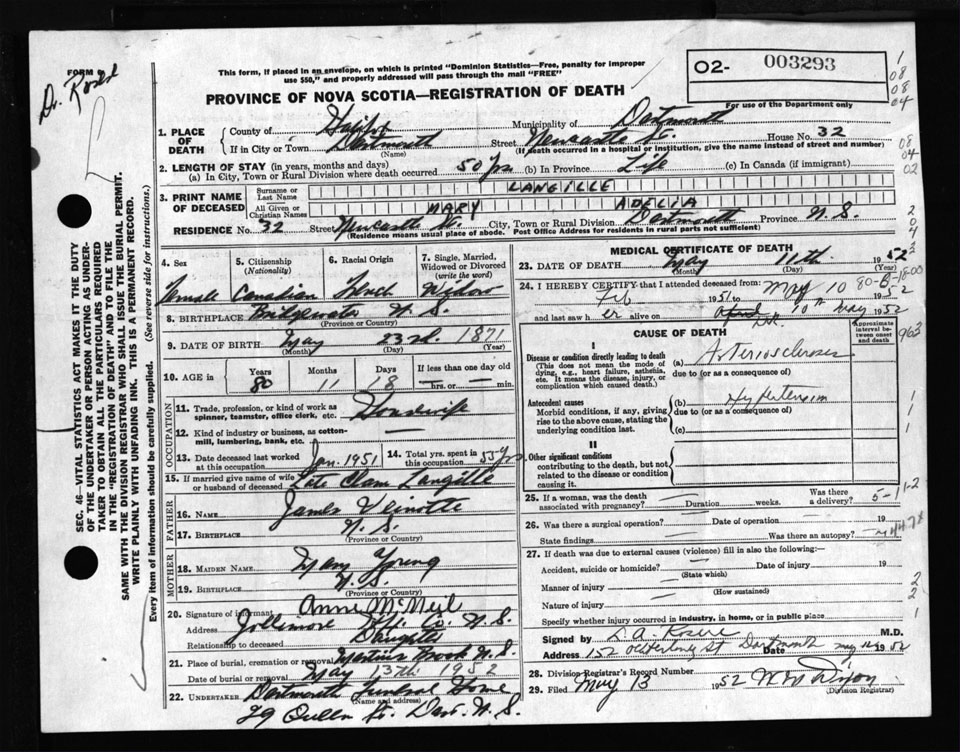 FORM 6
Dr. Rosere
This form, if placed in an envelope, on which is printed "Dominion Statistics—Free, penalty for improper
use $50," and properly addressed will pass through the mail "FREE"
PROVINCE OF NOVA SCOTIA—REGISTRATION OF DEATH
O2- 003293
For use of the Department only
1. PLACE OF DEATH County of Halifax Municipality of Dartmouth
If in City or Town Dartmouth (Name) Street Newcastle St. House No. 32
(If death occurred in a hospital or institution, give the name instead of street and number)
2. LENGTH OF STAY (in years, months and days)
(a) In City, Town or Rural Division where death occurred 50 yrs (b) In Province Life (c) In Canada (if immigrant)
3. PRINT NAME OF DECEASED Surname or Last Name LANGILLE
All Given or Christian Names MARY ADELIA
RESIDENCE No. 32 Street Newcastle St. City, Town or Rural Division Dartmouth Province N.S.
(Residence means usual place of abode. Post Office Address for residents in rural parts not sufficient)
4. Sex 5. Citizenship (Nationality) 6. Racial Origin 7. Single, Married, Widowed or Divorced (write the word)
Female Canadian French Widow
8. BIRTHPLACE Bridgewater N.S.
(Province or Country)
9. DATE OF BIRTH May 23rd. 1871
(Month) (Day) (Year)
10. AGE in Years Months Days If less than one day old
80 11 18 — hrs. or — min.
OCCUPATION
11. Trade, profession, or kind of work as spinner, teamster, office clerk, etc. Housewife
12. Kind of industry or business, as cotton-mill, lumbering, bank, etc. —
13. Date deceased last worked at this occupation Jan. 1951 14. Total yrs. spent in this occupation 55 yrs.
15. If married give name of wife or husband of deceased Late Clam Langille
FATHER
16. Name James Veinotte
17. Birthplace N.S.
(Province or Country)
MOTHER
18. Maiden Name Mary Young
19. Birthplace N.S.
(Province or Country)
20. Signature of informant Anne McNeil
Address Jollimore Hfx. Co. N.S.
Relationship to deceased Daughter
21. Place of burial, cremation or removal Martins Brook N.S.
Date of burial or removal May 13th 1952
22. Undertaker Dartmouth Funeral Home
(Name and address)
79 Queen St. Dart. N.S.
MEDICAL CERTIFICATE OF DEATH
23. DATE OF DEATH May 11th. 1952
(Month) (Day) (Year)
24. I HEREBY CERTIFY that I attended deceased from
Feb 1951 to May 10 1952
and last saw her alive on May 10 1952
CAUSE OF DEATH
Approximate interval between onset and death
I
Disease or condition directly leading to death (a) Arteriosclerosis
(This does not mean the mode of dying, e.g., heart failure, asthenia, etc. It means the disease, injury, or complication which caused death.)
due to (or as a consequence of)
Antecedent causes (b) Hypertension
Morbid conditions, if any, giving rise to the above cause, stating the underlying condition last.
due to (or as a consequence of)
(c)
II
Other significant conditions
contributing to the death, but not related to the disease or condition causing it.
25. If a woman, was the death associated with pregnancy? — Duration — weeks. Was there a delivery? —
26. Was there a surgical operation? — Date of operation — 19
State findings Was there an autopsy? —
27. If death was due to external causes (violence) fill in also the following:—
Accident, suicide or homicide? — Date of injury 19
(State which)
Manner of injury —
(How sustained)
Nature of injury —
Specify whether injury occurred in industry, in home, or in public place
Signed by L. A. Rosere M.D.
Address 152 Ochterloney St Dartmouth Date May 12 1952
28. Division Registrar's Record Number
29. Filed May 13 1952 Dixon
(Division Registrar)
SEC. 46—VITAL STATISTICS ACT MAKES IT THE DUTY
OF THE UNDERTAKER OR PERSON ACTING AS UNDER-
TAKER TO OBTAIN ALL THE PARTICULARS REQUIRED
IN THE "REGISTRATION OF DEATH" AND TO FILE THE
SAME WITH THE DIVISION REGISTRAR WHO SHALL ISSUE THE BURIAL PERMIT.
WRITE PLAINLY WITH UNFADING INK. THIS IS A PERMANENT RECORD.
Every item of information should be carefully supplied. (See reverse side for instructions.)